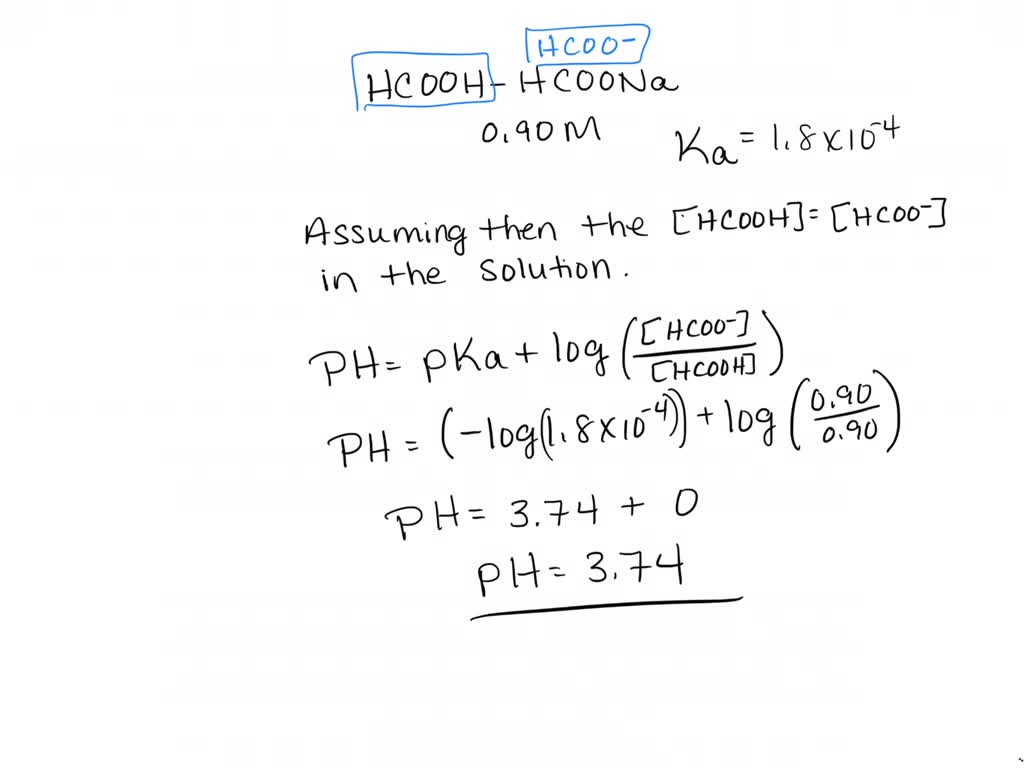 HCOO-
HCOOH- HCOONa
0.90M
Ka = 1.8x10-4
Assuming then the [HCOOH]=[HCOO-]
in the solution.
PH= pKa+log([HCOO-]/[HCOOH])
PH = (-log(1.8x10-4))+log(0.90/0.90)
PH= 3.74 + 0
PH= 3.74